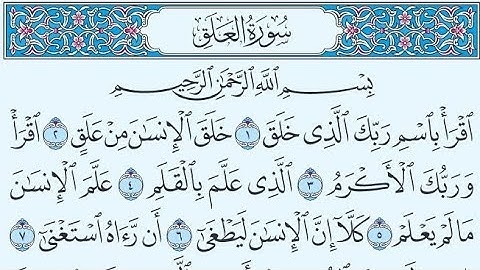 سُورَةُ العَلَقِ
بِسْمِ اللَّهِ الرَّحْمَٰنِ الرَّحِيمِ
ٱقْرَأْ بِٱسْمِ رَبِّكَ ٱلَّذِى خَلَقَ ١ خَلَقَ ٱلْإِنسَٰنَ مِنْ عَلَقٍ ٢ ٱقْرَأْ
وَرَبُّكَ ٱلْأَكْرَمُ ٣ ٱلَّذِى عَلَّمَ بِٱلْقَلَمِ ٤ عَلَّمَ ٱلْإِنسَٰنَ
مَا لَمْ يَعْلَمْ ٥ كَلَّآ إِنَّ ٱلْإِنسَٰنَ لَيَطْغَىٰٓ ٦ أَن رَّءَاهُ ٱسْتَغْنَىٰٓ ٧